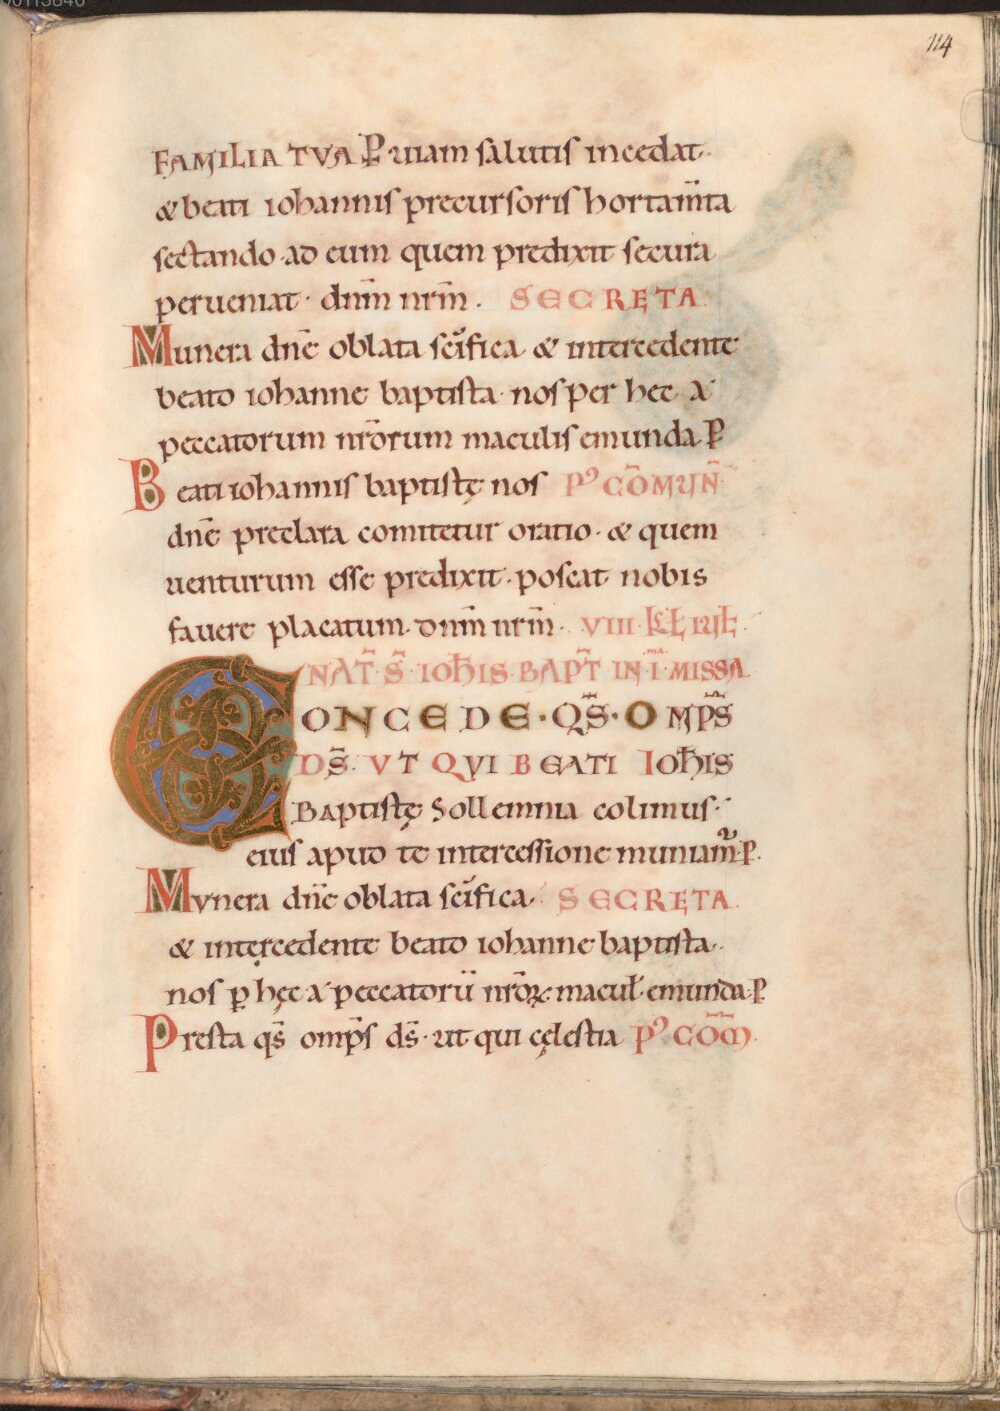 114
FAMILIA TVA P̱ uiam salutis incedat·
& beati iohannis precursoris hortam̄ta
sectando· ad eum quem predixit secura
perueniat· dnm̄ nrm̄· SECRETA·
Munera dnē oblata sc̄ifica & intercedente
beato iohanne baptista· nos per hec a
peccatorum nrōrum maculis emunda· P̱
Beati iohannis baptistę nos Pꝰ COM̄UN̄
dnē preclara comitetur oratio· & quem
uenturum esse predixit· poscat nobis
fauere placatum· dnm̄ nrm̄· VIII· KL̄ IUL̄·
NAT̄· S̄· IOH̄IS· BAPT̄ IN I·MA· MISSA
CONCEDE· QS̄· OMPS̄
DS̄· VT QVI BEATI IOH̄IS
Baptistę Sollemnia colimus·
eius apud te intercessione muniam᷑· P̱·
Mvnera dn̄e oblata sc̄ifica· SECRETA·
& intęrcedente beato iohanne baptista·
nos ꝑ hęc a peccatorū nrōꝝ· macul̄· emunda· P̱
Presta qs̄ omps̄ ds̄· ut qui cęlestia Pꝰ COM̄·